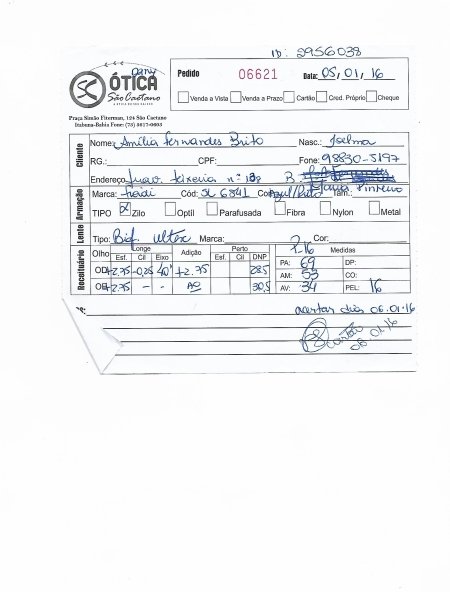 ID: 2956038
Dany
ÓTICA
São Caetano
Praça Simão Fiterman, 124 São Caetano
Itabuna-Bahia Fone: (73) 3617-0603
Pedido 06621 Data: 05, 01, 16
Venda a Vista Venda a Prazo Cartão Cred. Próprio Cheque
Cliente
Nome: Amília Fernandes Brito Nasc.: Joelma
RG.: CPF: Fone: 98830-5197
Endereço: Juav. Teixeira nº B.
Maria Pinheiro
Armação
Marca: Cód: 6341 Cor: Azul/Preto Tam.:
TIPO Zilo Optil Parafusada Fibra Nylon Metal
Lente
Tipo: Bif. Ultex Marca: Cor:
Receituário
Olho Longe Adição Perto P-16 Medidas
Esf. Cil Eixo Esf. Cil DNP
OD +2.75 -0,25 40° +2.75 28,5
OE +2.75 - - AO 30,5
PA: 69 DP:
AM: 53 CO:
AV: 34 PEL: 16
acertar dia 06.01.16
Cartão
06.01.16